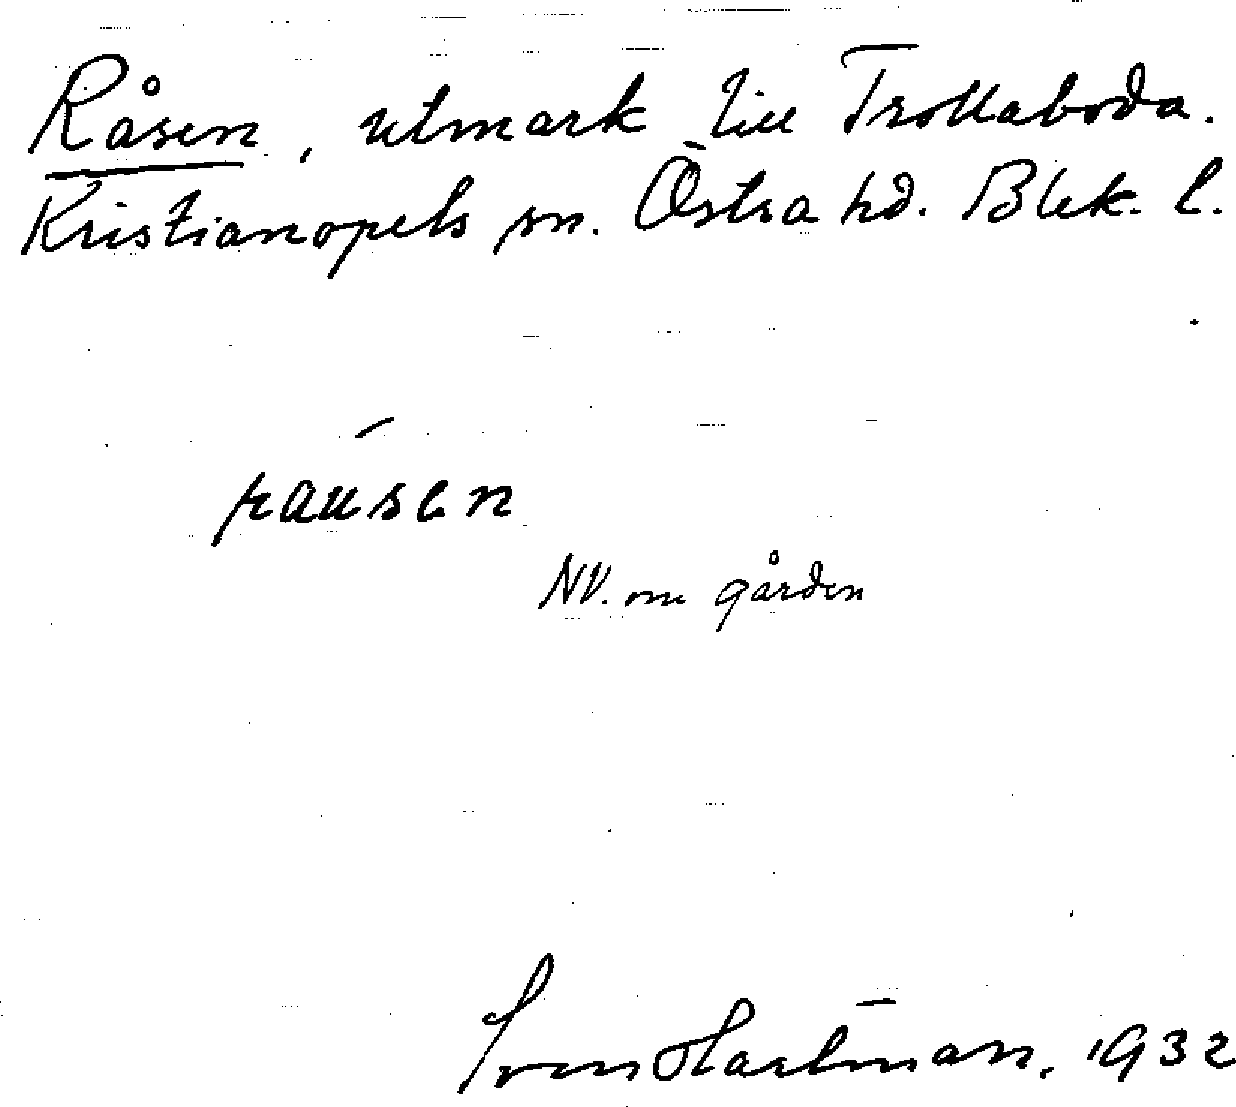 Råsen, utmark till Trollaboda.
Kristianopels sn. Östra hd. Blek. l.
ráusen
NV. om gården
Sven Hartman, 1932